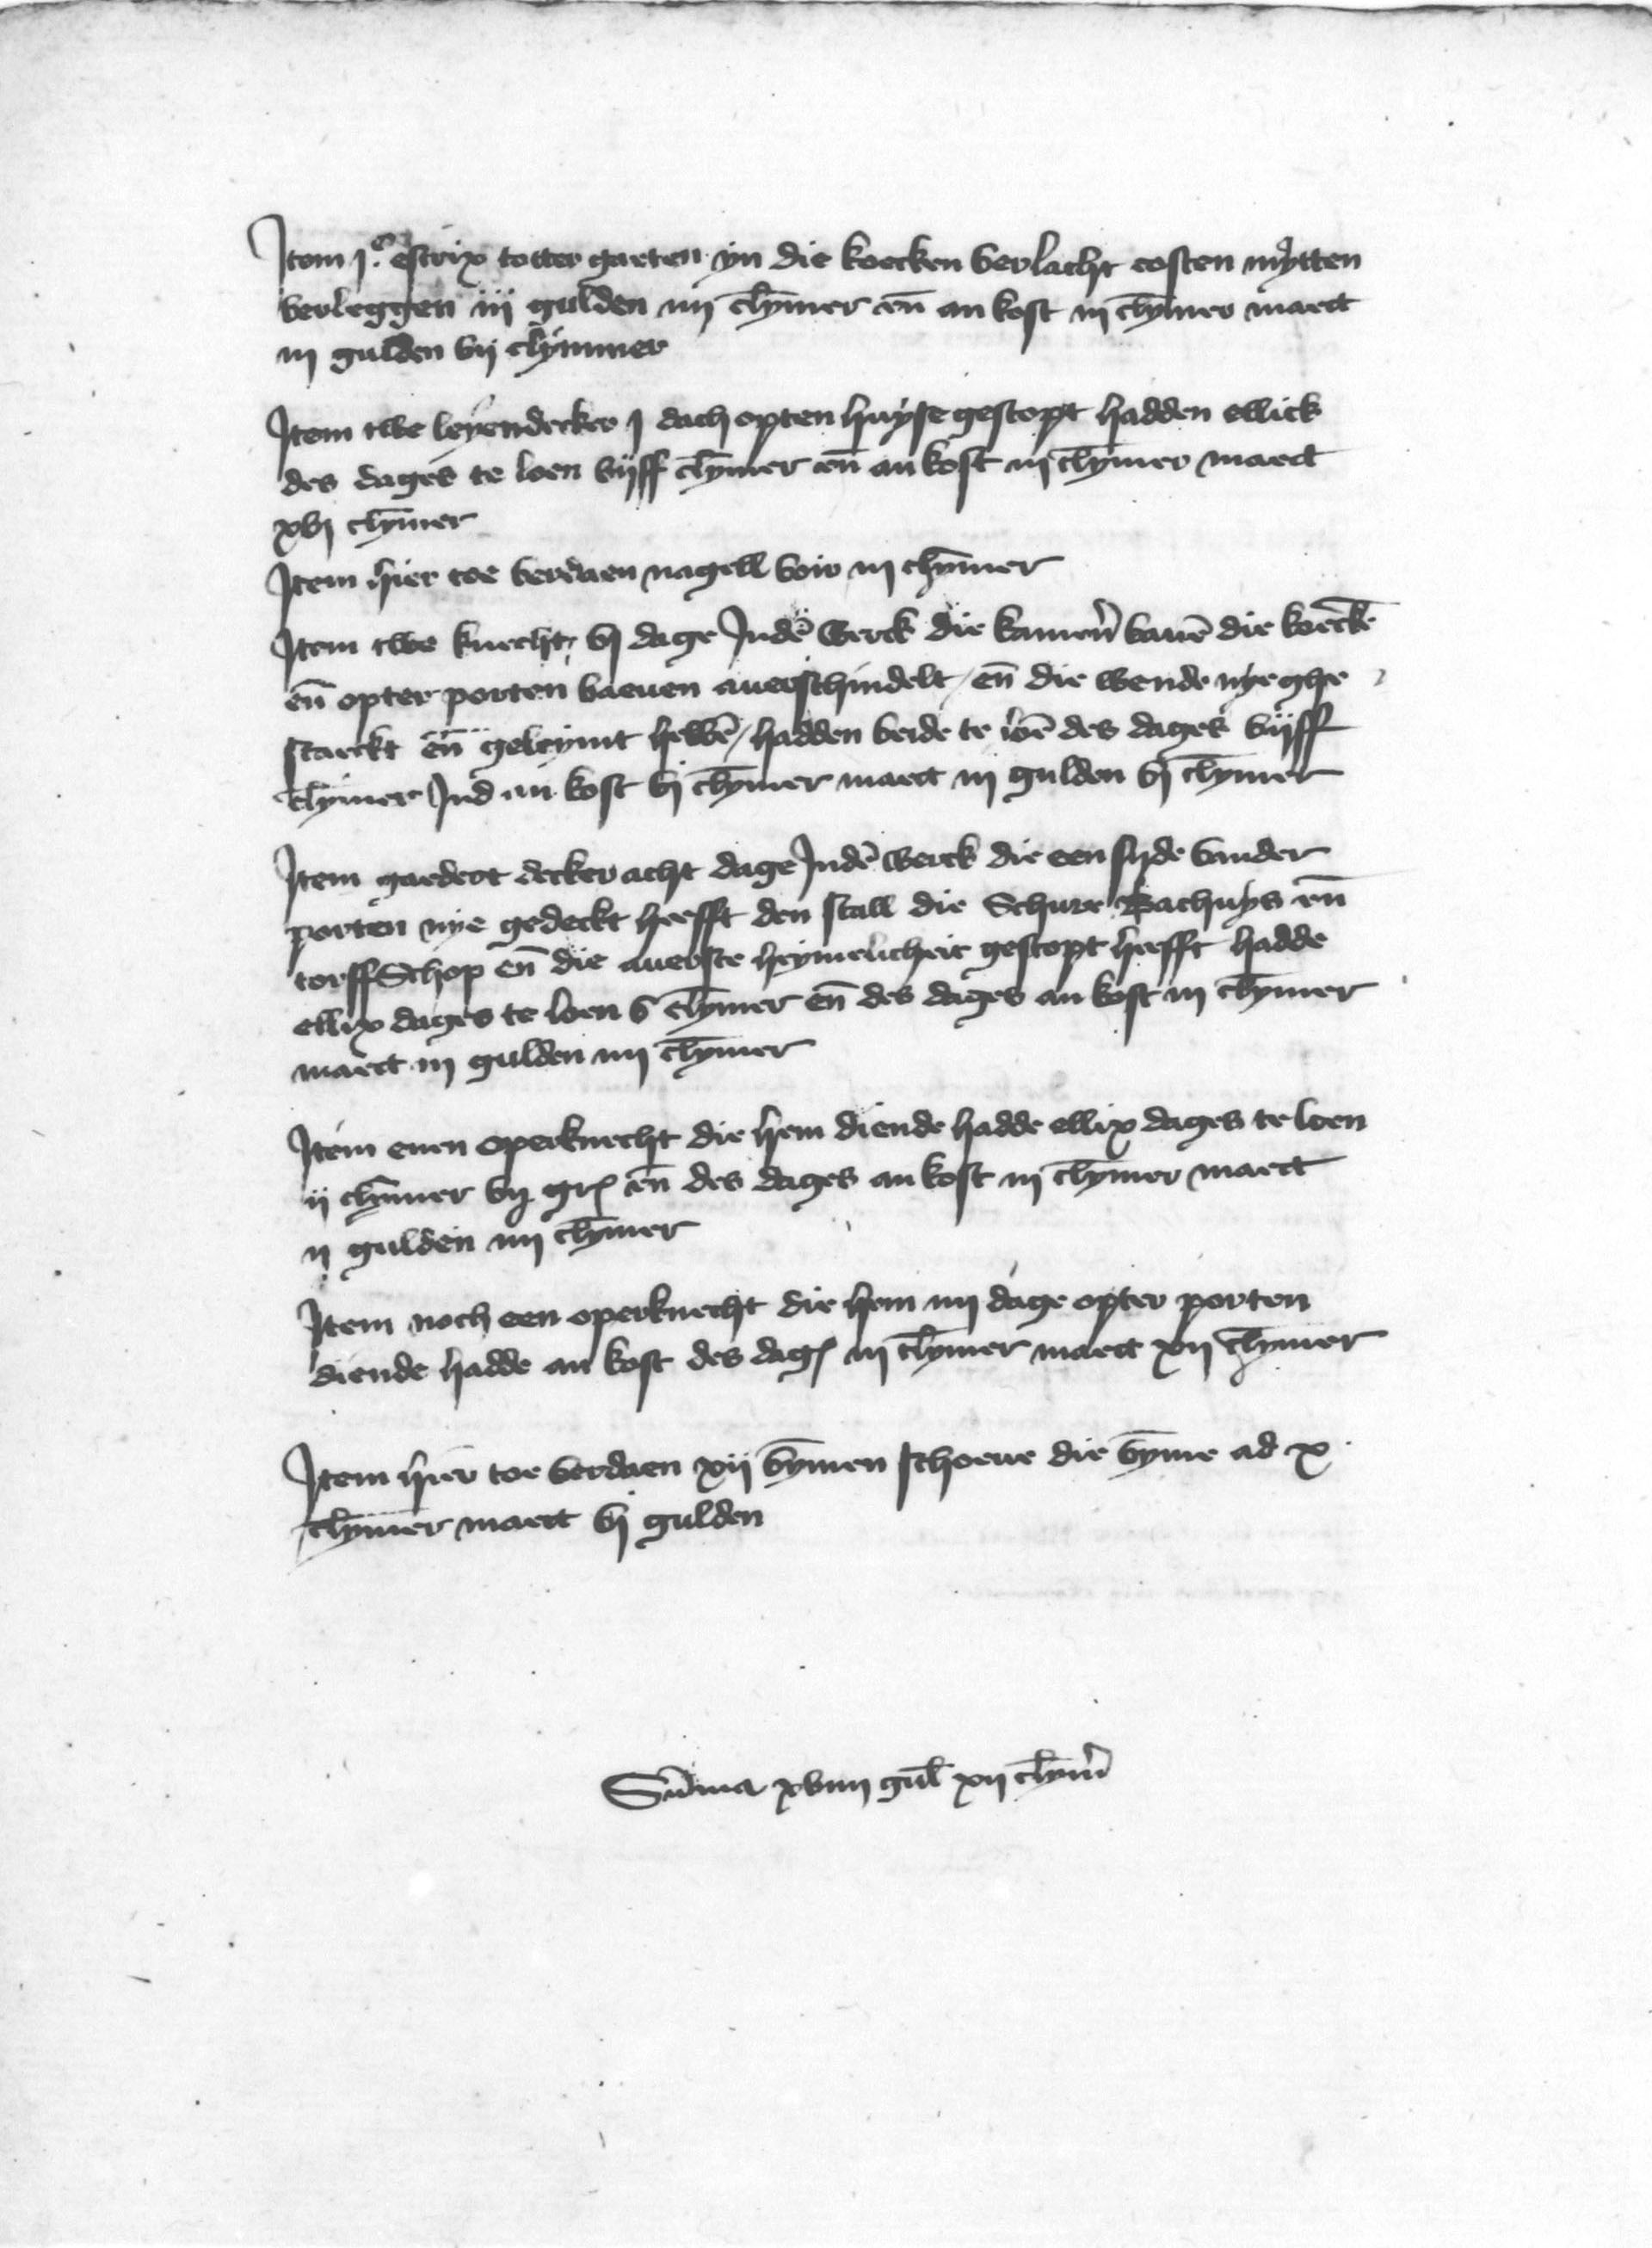 Item j.c estrix totter garten yn die koecken verlacht costen mytten
verleggen iij gulden iiij clȳmer en̄ an kost iij clȳmer maect
iij gulden vij clymmer
Item twe leyendecker j dach opten huyse gestopt hadden ellick
des dages te loen vijff clȳmer en̄ an kost iij clȳmer maect
xvj clȳmer
Item hier toe verdaen nagell voir iij clȳmer
Item twe knecht vj dage Indē werck die kamer bauē die koeckē
en̄ opter porten baeuen auerschindelt / en̄ die wende nye ghe
staeckt en̄ geleymt hebbē / hadden beide te loē des dages vijff
clȳmer Ind an kost vj clȳmer maect iij gulden vj clȳmer
Item gaedert decker acht dage Indē werck die een syde vander
porten nye gedeckt heefft den stall die Schure Bachuys en̄
torffSchop en̄ die auerste heymelicheit gestopt heefft hadde
ellix dages te loen v clȳmer en̄ des dages an kost iij clȳmer
maect iij gulden iiij clȳmer
Item enen operknecht die hem diende hadde ellix dages te loen
ij clȳmer vij gr en̄ des dages an kost iij clȳmer maect
ij gulden iiij clȳmer
Item noch een operknecht die hem iiij dage opter porten
diende hadde an kost des dag iij clȳmer maect xij clȳmer
Item hier toe verdaen xij vȳmen schoeue die vȳme ad x
clȳmer maect vj gulden
Sūma xviiij gul xij clȳm